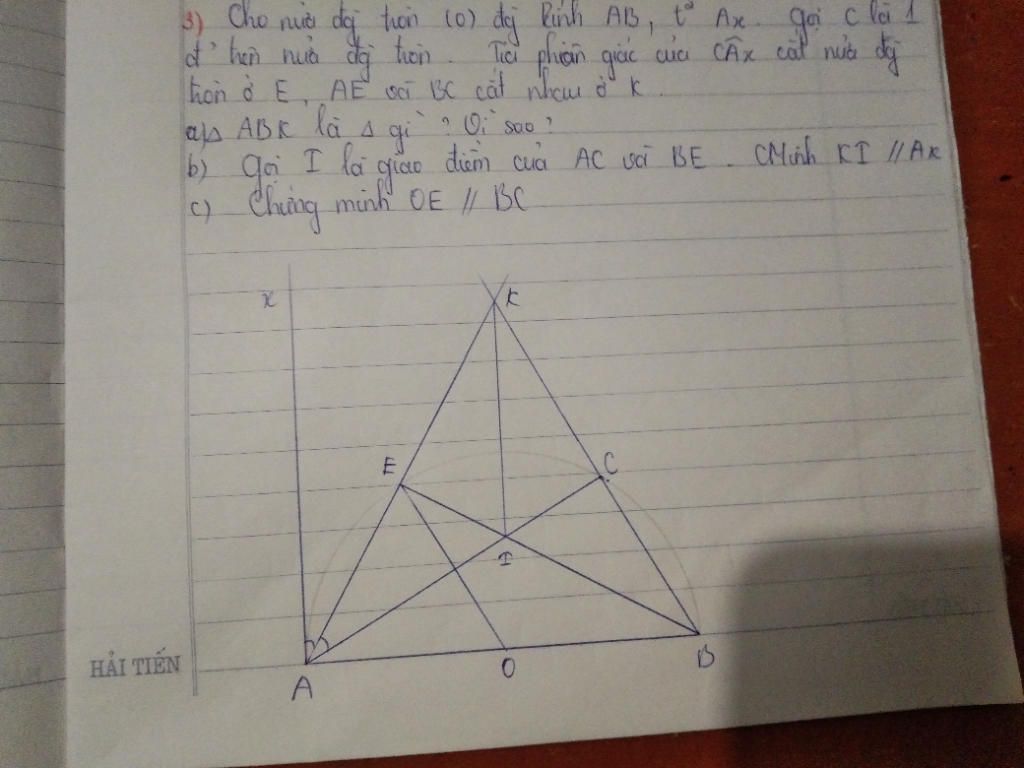 3) Cho nửa đg tròn (O) đg kính AB, t² Ax. Gọi C là 1
đ' trên nửa đg tròn. Tia phân giác của CÂx cắt nửa đg
tròn ở E, AE và BC cắt nhau ở K.
a) Δ ABK là Δ gì? Vì sao?
b) Gọi I là giao điểm của AC và BE. CMinh KI // Ax
c) Chứng minh OE // BC
x K
E C
I
A O B
HẢI TIẾN